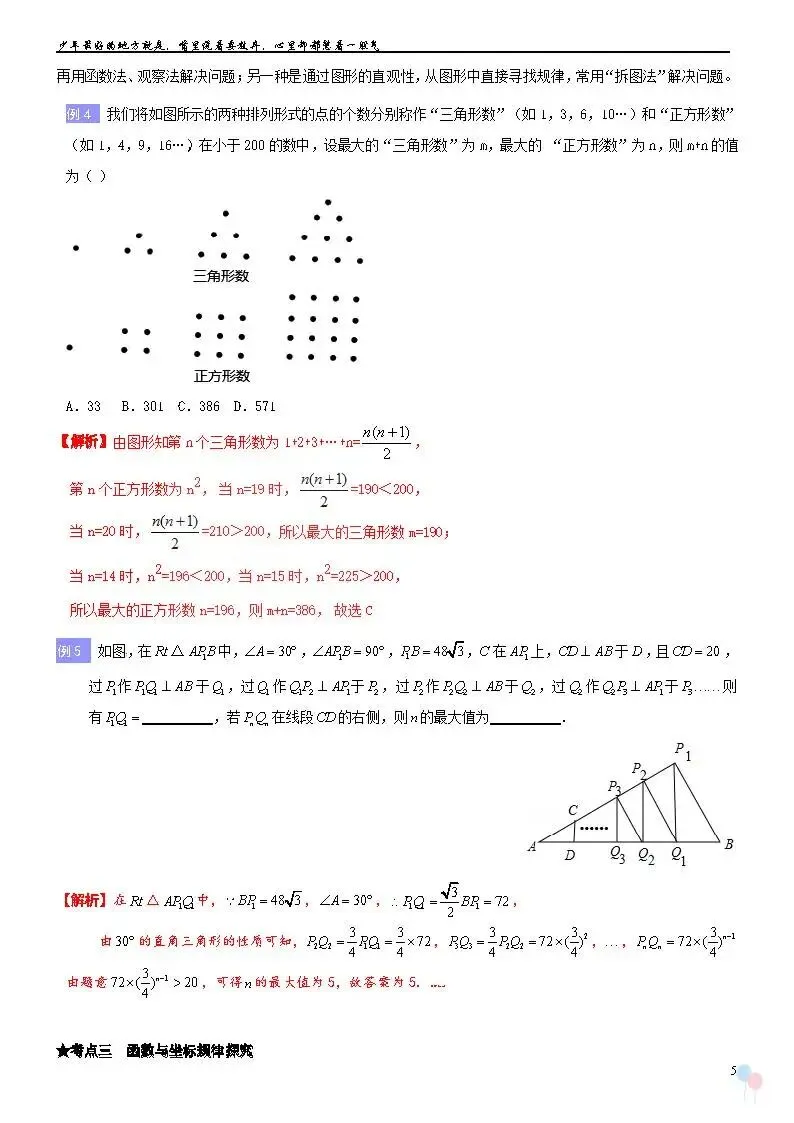 少年最好的地方就是，嘴里说着要放弃，心里却都憋着一股气
再用函数法、观察法解决问题；另一种是通过图形的直观性，从图形中直接寻找规律，常用“拆图法”解决问题。
例4 我们将如图所示的两种排列形式的点的个数分别称作“三角形数”（如1，3，6，10…）和“正方形数”
（如1，4，9，16…），在小于200的数中，设最大的“三角形数”为m，最大的 “正方形数”为n，则m+n的值
为（ ）
三角形数
正方形数
A．33 B．301 C．386 D．571
【解析】由图形知第n个三角形数为 1+2+3+…+n=n(n+1)/2，
第n个正方形数为n²，当n=19时，n(n+1)/2=190＜200，
当n=20时，n(n+1)/2=210＞200，所以最大的三角形数m=190；
当n=14时，n²=196＜200，当n=15时，n²=225＞200，
所以最大的正方形数n=196，则m+n=386， 故选C
例5 如图，在Rt△AP₁B中，∠A=30°，∠AP₁B=90°，P₁B=48√3，C在AP₁上，CD⊥AB于D，且CD=20，
过P₁作P₁Q₁⊥AB于Q₁，过Q₁作Q₁P₂⊥AP₁于P₂，过P₂作P₂Q₂⊥AB于Q₂，过Q₂作Q₂P₃⊥AP₁于P₃……则
有P₁Q₁=____________，若PₙQₙ在线段CD的右侧，则n的最大值为____________．
P1
P2
P3
C
......
A D Q3 Q2 Q1 B
【解析】在Rt△AP₁Q₁中，∵BP₁=48√3，∠A=30°，∴P₁Q₁=√3/2BP₁=72，
由30°的直角三角形的性质可知，P₂Q₂=3/4P₁Q₁=3/4×72，P₃Q₃=3/4P₂Q₂=72×(3/4)²，…，PₙQₙ=72×(3/4)ⁿ⁻¹
由题意72×(3/4)ⁿ⁻¹>20，可得n的最大值为5，故答案为5．……
★考点三 函数与坐标规律探究
5